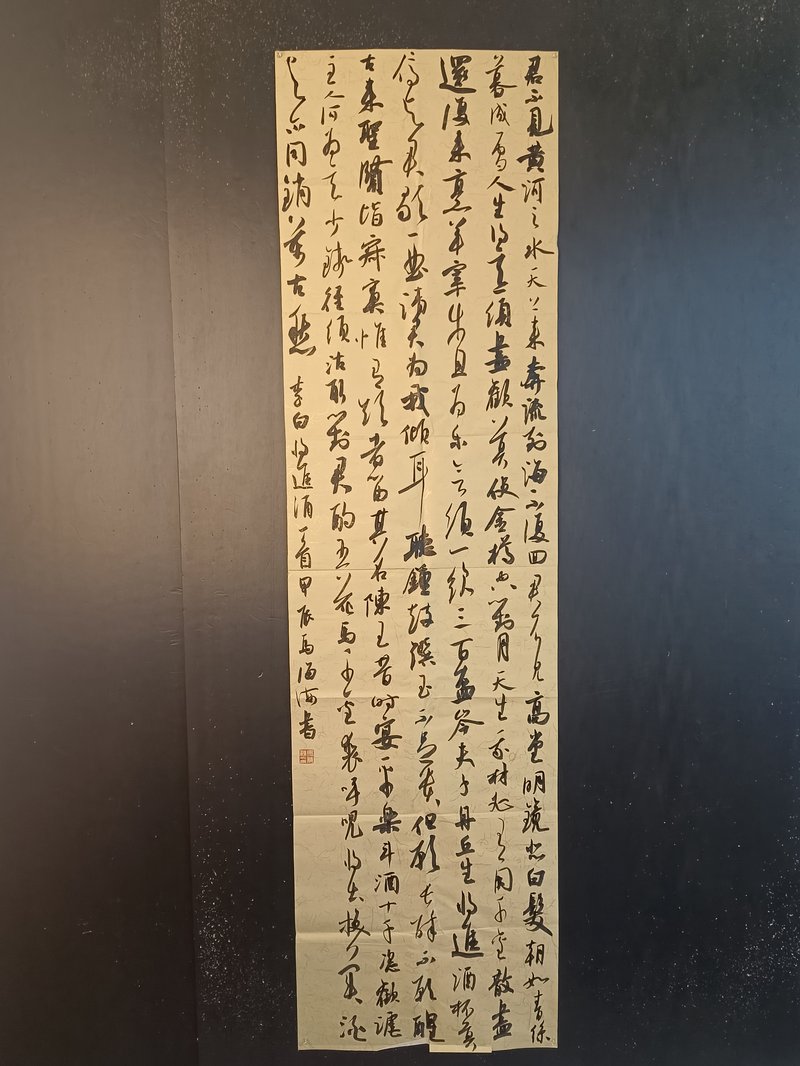 君不見黃河之水天上來奔流到海不復回君不見高堂明鏡悲白髮朝如青絲
暮成雪人生得意須盡歡莫使金樽空對月天生我材必有用千金散盡
還復來烹羊宰牛且為樂會須一飲三百盃岑夫子丹丘生將進酒杯莫
停與君歌一曲請君為我傾耳聽鐘鼓饌玉不足貴但願長醉不願醒
古來聖賢皆寂寞惟有飲者留其名陳王昔時宴平樂斗酒十千恣歡謔
主人何為言少錢徑須沽取對君酌五花馬千金裘呼兒將出換美酒
與爾同銷萬古愁 李白將進酒一首甲辰馬海書